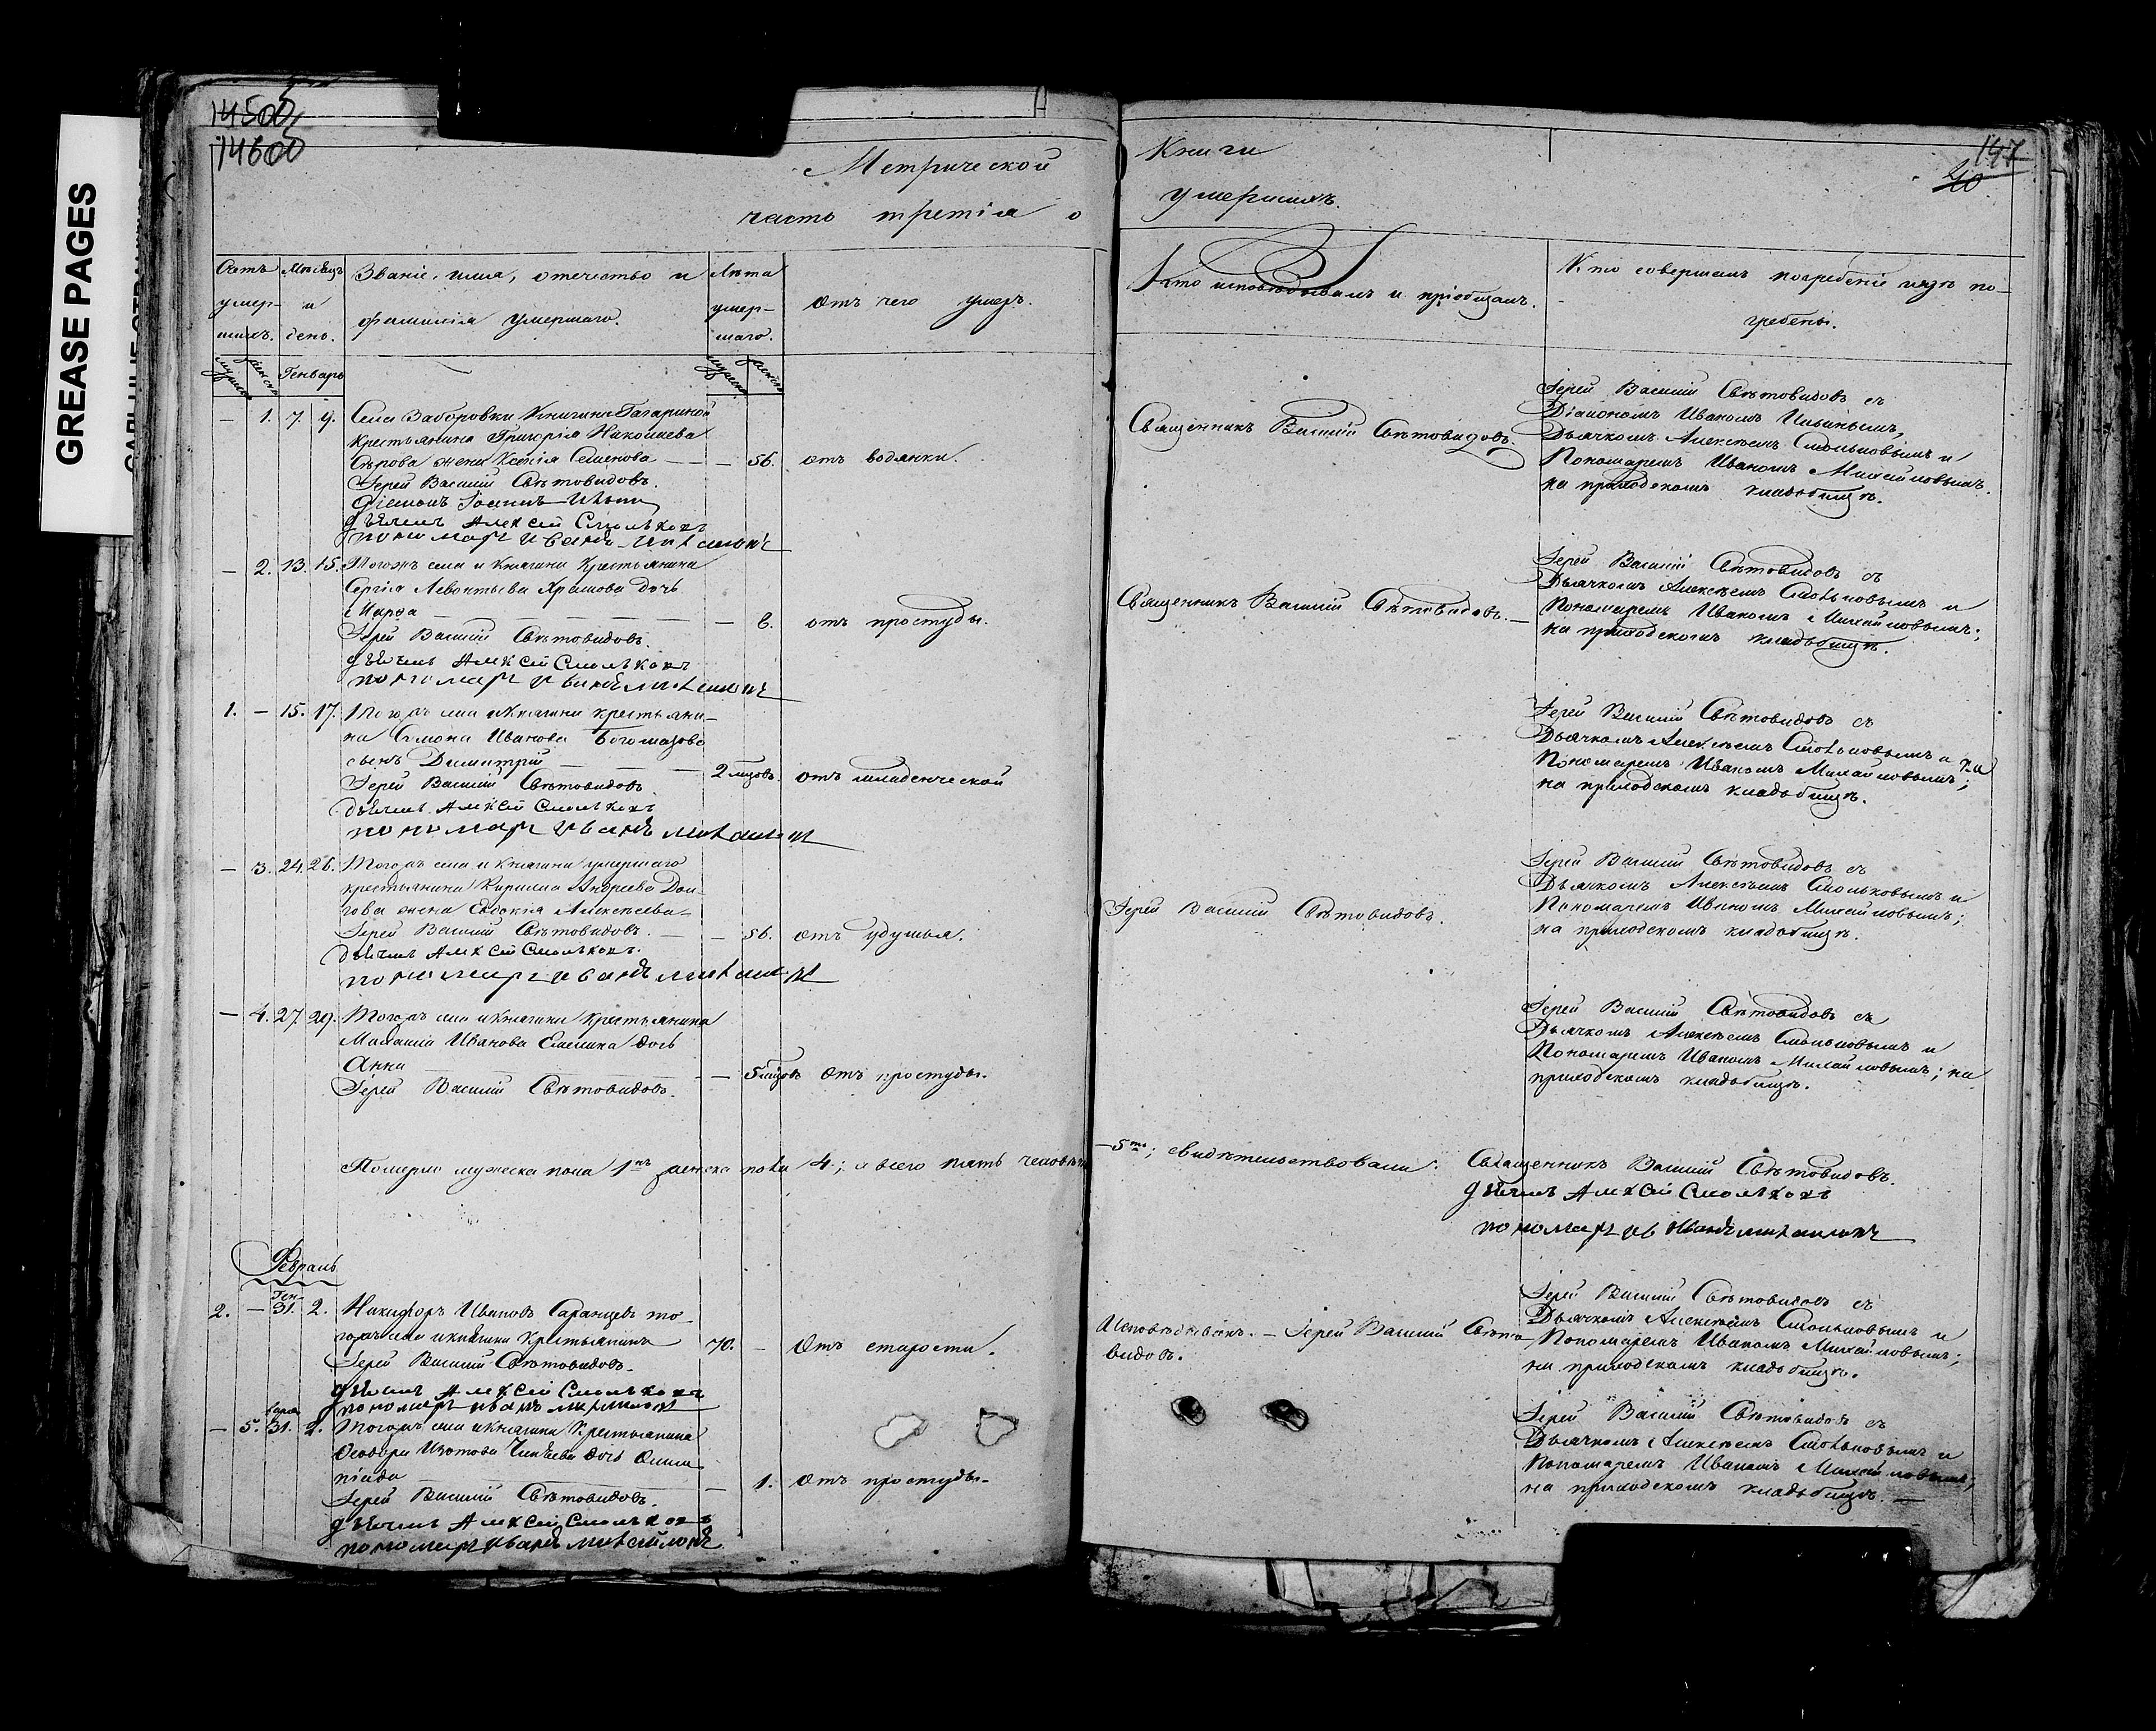 GREASE PAGES
14500
14600
147
40
Метрической Книги
часть третія о умершихъ.
Счетъ умер- шихъ.
Мѣсяцъ и день.
Званіе, имя, отечество и
фамилія умершаго.
Лѣта умер- шаго.
Отъ чего умеръ.
Кто исповѣдывалъ и пріобщалъ.
Кто совершалъ погребеніе и гдѣ по-
гребены.
Генварь
— 1. 7. 9. Села Заборовки Княгини Гагариной
Крестьянина Григорія Николаева
Сѣрова жена Ксенія Семенова — — 56. отъ водянки.
Іерей Василій Свѣтовидовъ.
діаконъ Іоаннъ Ильин
дьячекъ Алексей Смольковъ
пономарь иванъ михаиловъ
Священникъ Василій Свѣтовидовъ.
Іерей Василій Свѣтовидовъ съ
Діакономъ Иваномъ Ильинымъ,
Дьячкомъ Алексѣемъ Смольковымъ и
Пономаремъ Иваномъ Михайловымъ.
на приходскомъ кладбищѣ.
— 2. 13. 15. Тогожъ села и Княгини Крестьянина
Сергія Леонтьева Храмова дочь
Марѳа — 6. отъ простуды.
Іерей Василій Свѣтовидовъ.
дьячекъ Алексей Смольковъ
пономарь иванъ михаиловъ
Священникъ Василій Свѣтовидовъ.—
Іерей Василій Свѣтовидовъ съ
Дьячкомъ Алексѣемъ Смольковымъ и
Пономаремъ Иваномъ Михайловымъ;
на приходскомъ кладбищѣ.
1. — 15. 17. Тогожъ села и Княгини крестьяни-
на Симона Иванова Богомазова
сынъ Димитрій — 2 мѣсцовъ. отъ младенческой
Іерей Василій Свѣтовидовъ.
дьячекъ Алексей Смольковъ
пономарь иванъ михаиловъ
Іерей Василій Свѣтовидовъ съ
Дьячкомъ Алексѣемъ Смольковымъ и
Пономаремъ Иваномъ Михайловымъ;
на приходскомъ кладбищѣ.
— 3. 24. 26. Тогожъ села и Княгини умершаго
крестьянина Кирилла Андреева Дол-
гова жена Евдокія Алексѣева —
Іерей Василій Свѣтовидовъ. — — 56. отъ удушья.
дьячекъ Алексей Смольковъ.
пономарь иванъ михаиловъ
Іерей Василій Свѣтовидовъ.
Іерей Василій Свѣтовидовъ съ
Дьячкомъ Алексѣемъ Смольковымъ и
Пономаремъ Иваномъ Михайловымъ;
на приходскомъ кладбищѣ.
— 4. 27. 29. Тогожъ села и Княгини Крестьянина
Иванова дочь
Анна — 5 мѣсцовъ отъ простуды.
Іерей Василій Свѣтовидовъ.
Іерей Василій Свѣтовидовъ съ
Дьячкомъ Алексѣемъ Смольковымъ и
Пономаремъ Иваномъ Михайловымъ; на
приходскомъ кладбищѣ.
Померло мужеска пола 1нъ женска пола 4; а всего пять человѣкъ — 5ть; свидѣтельствовали: Священникъ Василій Свѣтовидовъ.
дьячекъ Алексей Смольковъ
пономарь иванъ михаиловъ
Февраль
2. — Ген- 31. 2. Никифоръ Ивановъ Саранцевъ то-
гожъ села и княгини Крестьянинъ 70. — Отъ старости.
Іерей Василій Свѣтовидовъ.
дьячекъ Алексей Смольковъ
пономарь иванъ михаиловъ
Исповѣдыванъ. — Іерей Василій Свѣто-
видовъ.
Іерей Василій Свѣтовидовъ съ
Дьячкомъ Алексѣемъ Смольковымъ и
Пономаремъ Иваномъ Михайловымъ;
на приходскомъ кладбищѣ.
— 5. варя 31. 2. Тогожъ села и Княгини Крестьянина
Ѳеодора дочь Олим
піада — 1. Отъ простуды.
Іерей Василій Свѣтовидовъ.
дьячекъ Алексей Смольковъ
пономарь иванъ михаиловъ
Іерей Василій Свѣтовидовъ съ
Дьячкомъ Алексѣемъ Смольковымъ и
Пономаремъ Иваномъ Михайловымъ;
на приходскомъ кладбищѣ. —